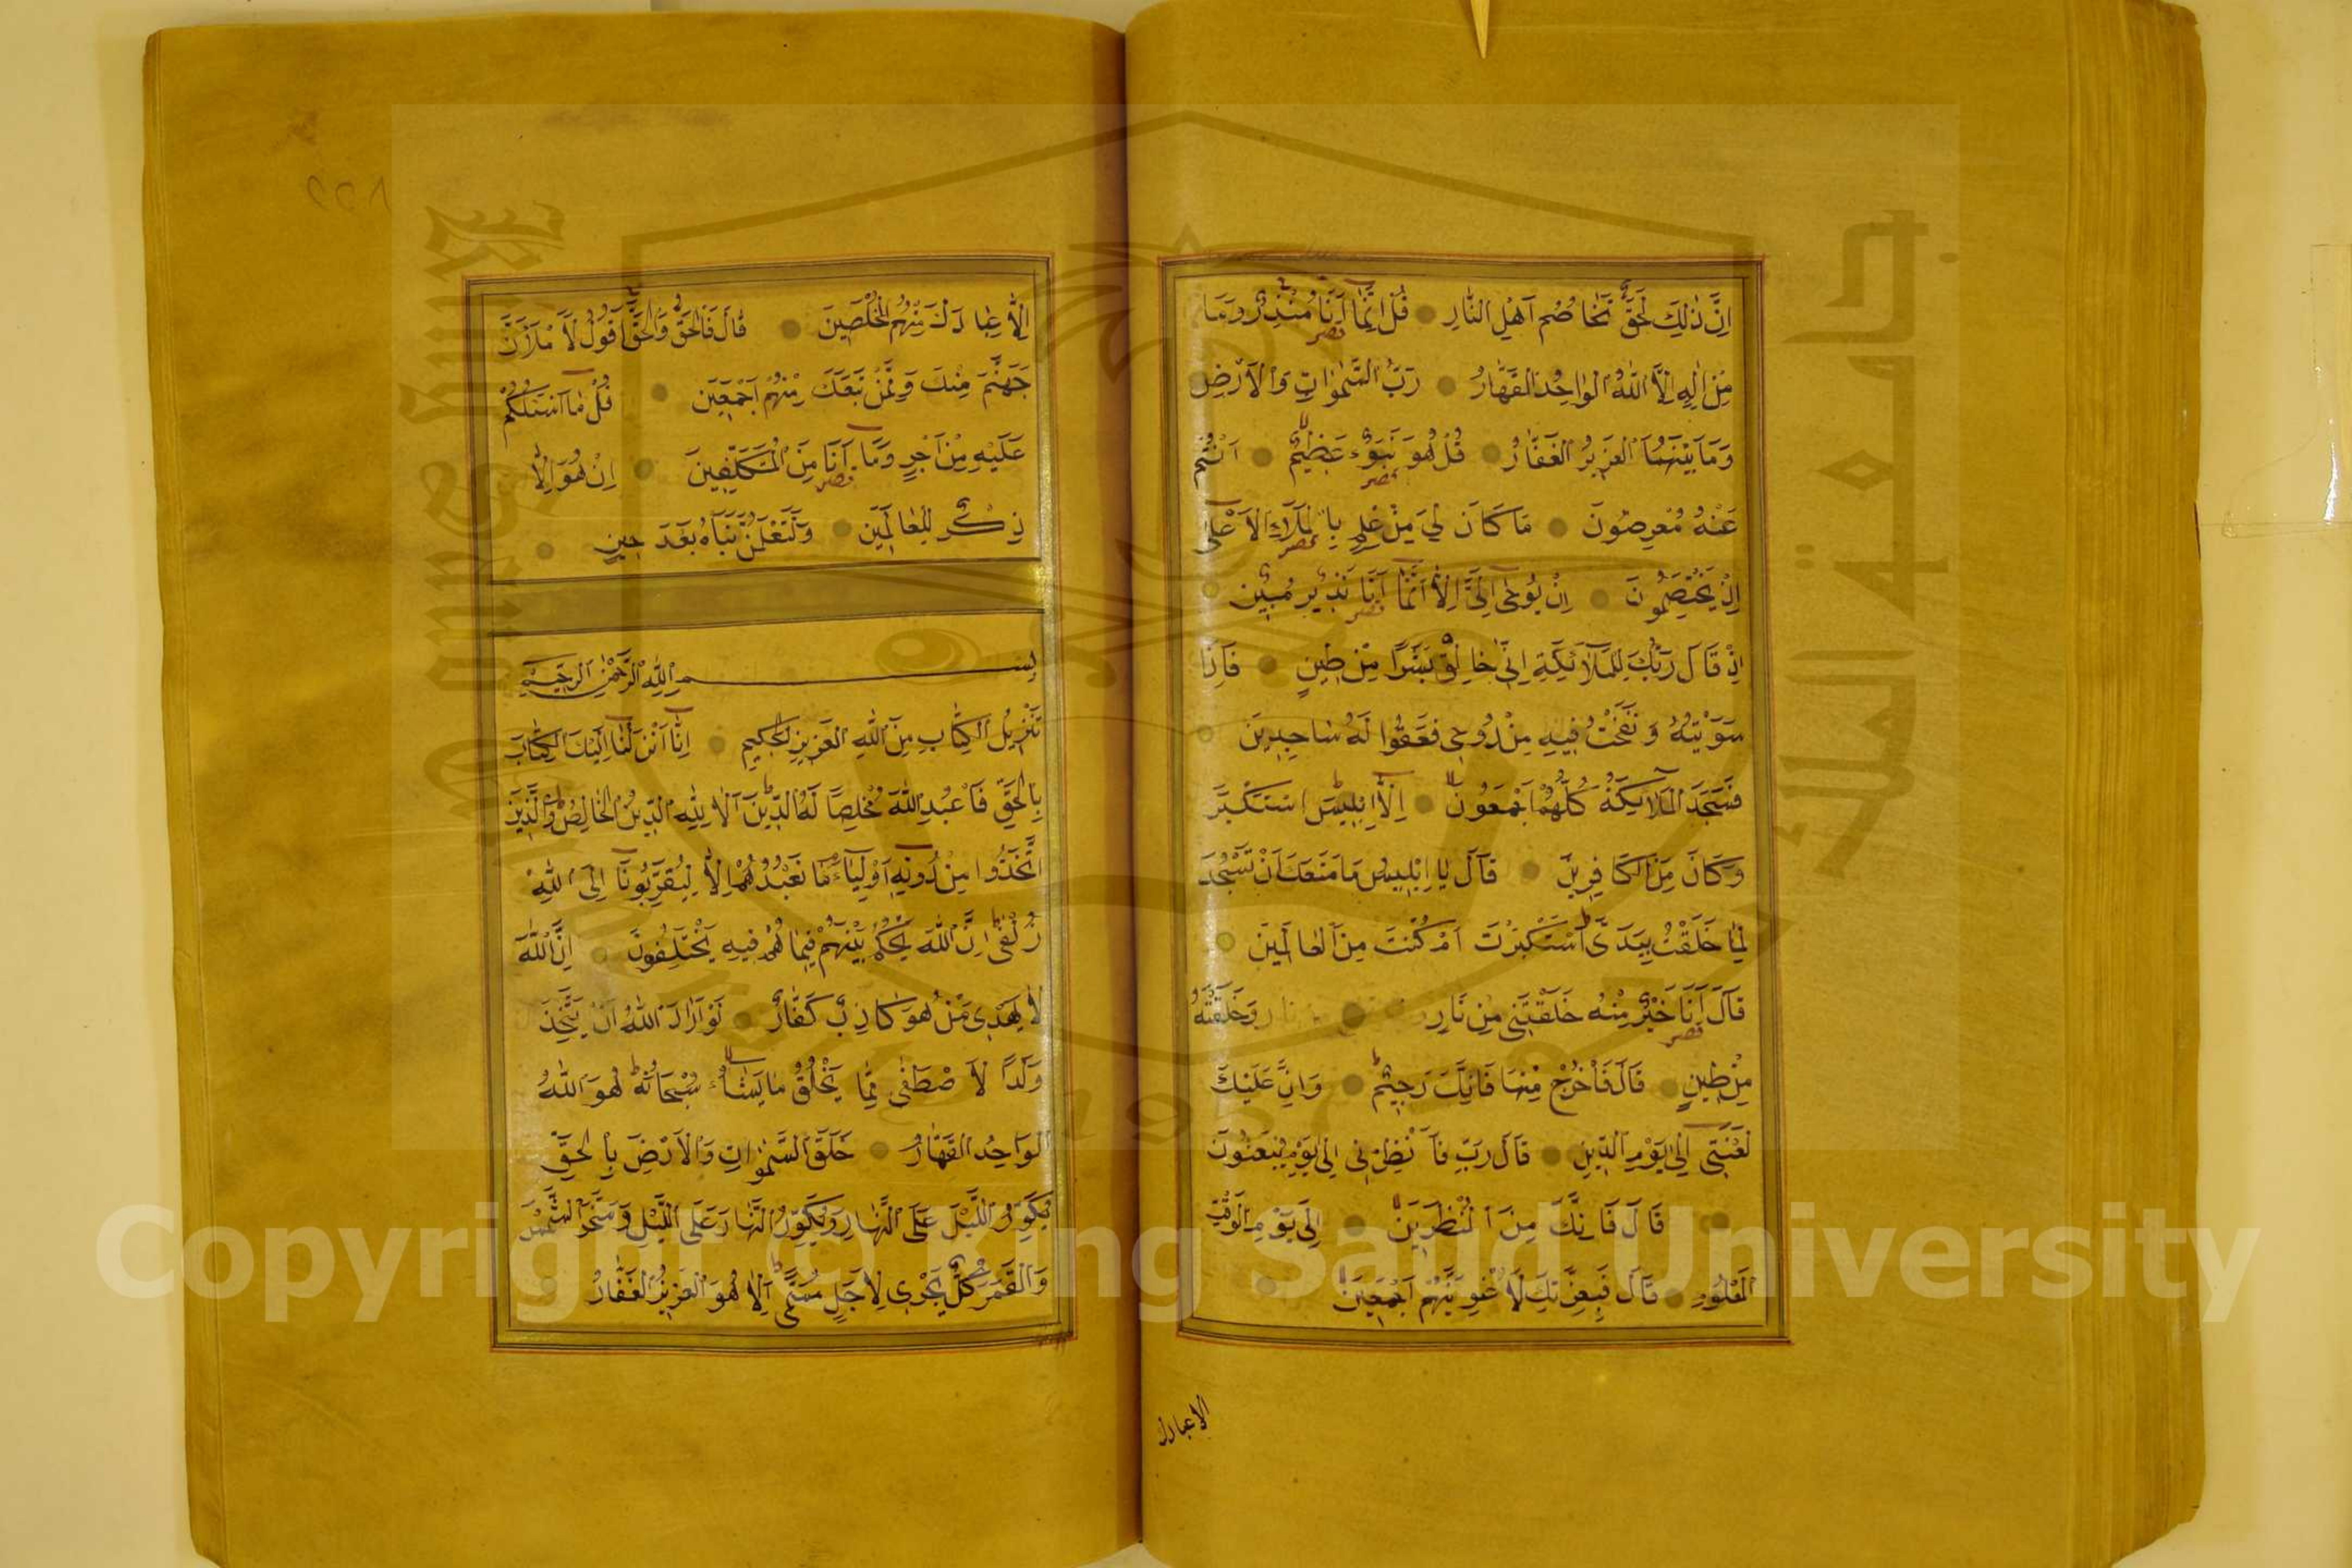 اِنَّ ذٰلِكَ لَحَقٌّ تَخَاصُمُ اَهْلِ النَّارِ قُلْ اِنَّمَا اَنَا مُنْذِرٌ وَمَا
مِنْ اِلٰهٍ اِلَّا اللّٰهُ الْوَاحِدُ الْقَهَّارُ رَبُّ السَّمٰوَاتِ وَالْاَرْضِ
وَمَا بَيْنَهُمَا الْعَزِيزُ الْغَفَّارُ قُلْ هُوَ نَبَؤٌ عَظِيمٌ اَنْتُمْ
عَنْهُ مُعْرِضُونَ مَا كَانَ لِيَ مِنْ عِلْمٍ بِالْمَلَاءِ الْاَعْلٰى
اِذْ يَخْتَصِمُونَ اِنْ يُوحٰى اِلَيَّ اِلَّا اَنَّمَا اَنَا نَذِيرٌ مُبِينٌ
اِذْ قَالَ رَبُّكَ لِلْمَلَائِكَةِ اِنِّي خَالِقٌ بَشَرًا مِنْ طِينٍ فَاِذَا
سَوَّيْتُهُ وَنَفَخْتُ فِيهِ مِنْ رُوحِي فَقَعُوا لَهُ سَاجِدِينَ
فَسَجَدَ الْمَلَائِكَةُ كُلُّهُمْ اَجْمَعُونَ اِلَّا اِبْلِيسَ اسْتَكْبَرَ
وَكَانَ مِنَ الْكَافِرِينَ قَالَ يَا اِبْلِيسُ مَا مَنَعَكَ اَنْ تَسْجُدَ
لِمَا خَلَقْتُ بِيَدَيَّ اَسْتَكْبَرْتَ اَمْ كُنْتَ مِنَ الْعَالِينَ
قَالَ اَنَا خَيْرٌ مِنْهُ خَلَقْتَنِي مِنْ نَارٍ وَخَلَقْتَهُ
مِنْ طِينٍ قَالَ فَاخْرُجْ مِنْهَا فَاِنَّكَ رَجِيمٌ وَاِنَّ عَلَيْكَ
لَعْنَتِي اِلٰى يَوْمِ الدِّينِ قَالَ رَبِّ فَاَنْظِرْنِي اِلٰى يَوْمِ يُبْعَثُونَ
قَالَ فَاِنَّكَ مِنَ الْمُنْظَرِينَ اِلٰى يَوْمِ الْوَقْتِ
الْمَعْلُومِ قَالَ فَبِعِزَّتِكَ لَاُغْوِيَنَّهُمْ اَجْمَعِينَ
الا عبادك
اِلَّا عِبَادَكَ مِنْهُمُ الْمُخْلَصِينَ قَالَ فَالْحَقُّ وَالْحَقَّ اَقُولُ لَاَمْلَاَنَّ
جَهَنَّمَ مِنْكَ وَمِمَّنْ تَبِعَكَ مِنْهُمْ اَجْمَعِينَ قُلْ مَا اَسْئَلُكُمْ
عَلَيْهِ مِنْ اَجْرٍ وَمَا اَنَا مِنَ الْمُتَكَلِّفِينَ اِنْ هُوَ اِلَّا
ذِكْرٌ لِلْعَالَمِينَ وَلَتَعْلَمُنَّ نَبَاَهُ بَعْدَ حِينٍ
بِسْمِ اللّٰهِ الرَّحْمٰنِ الرَّحِيمِ
تَنْزِيلُ الْكِتَابِ مِنَ اللّٰهِ الْعَزِيزِ الْحَكِيمِ اِنَّا اَنْزَلْنَا اِلَيْكَ الْكِتَابَ
بِالْحَقِّ فَاعْبُدِ اللّٰهَ مُخْلِصًا لَهُ الدِّينَ اَلَا لِلّٰهِ الدِّينُ الْخَالِصُ وَالَّذِينَ
اتَّخَذُوا مِنْ دُونِهِ اَوْلِيَاءَ مَا نَعْبُدُهُمْ اِلَّا لِيُقَرِّبُونَا اِلَى اللّٰهِ
زُلْفٰى اِنَّ اللّٰهَ يَحْكُمُ بَيْنَهُمْ فِيمَا هُمْ فِيهِ يَخْتَلِفُونَ اِنَّ اللّٰهَ
لَا يَهْدِي مَنْ هُوَ كَاذِبٌ كَفَّارٌ لَوْ اَرَادَ اللّٰهُ اَنْ يَتَّخِذَ
وَلَدًا لَاصْطَفٰى مِمَّا يَخْلُقُ مَا يَشَاءُ سُبْحَانَهُ هُوَ اللّٰهُ
الْوَاحِدُ الْقَهَّارُ خَلَقَ السَّمٰوَاتِ وَالْاَرْضَ بِالْحَقِّ
يُكَوِّرُ اللَّيْلَ عَلَى النَّهَارِ وَيُكَوِّرُ النَّهَارَ عَلَى اللَّيْلِ وَسَخَّرَ الشَّمْسَ
وَالْقَمَرَ كُلٌّ يَجْرِي لِاَجَلٍ مُسَمًّى اَلَا هُوَ الْعَزِيزُ الْغَفَّارُ
Copyright © King Saud University